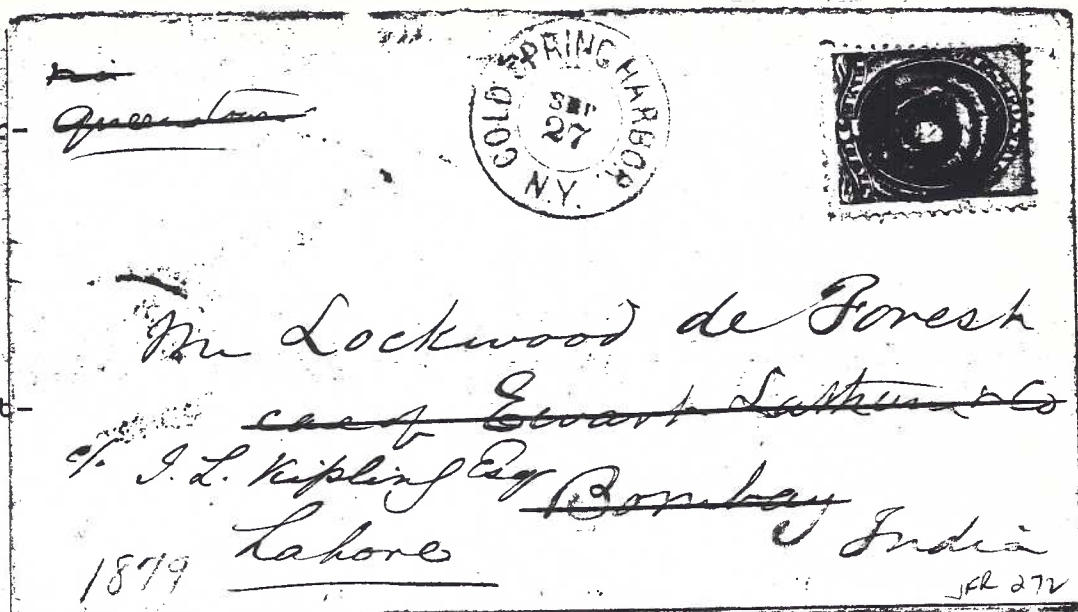 via
Queenstown
COLD SPRING HARBOR. N.Y.
SEP
27
Mr Lockwood de Forest
care of Ewart Latham & Co
c/. J. L. Kipling Esq
Bombay
India
Lahore
1879
JFR 272